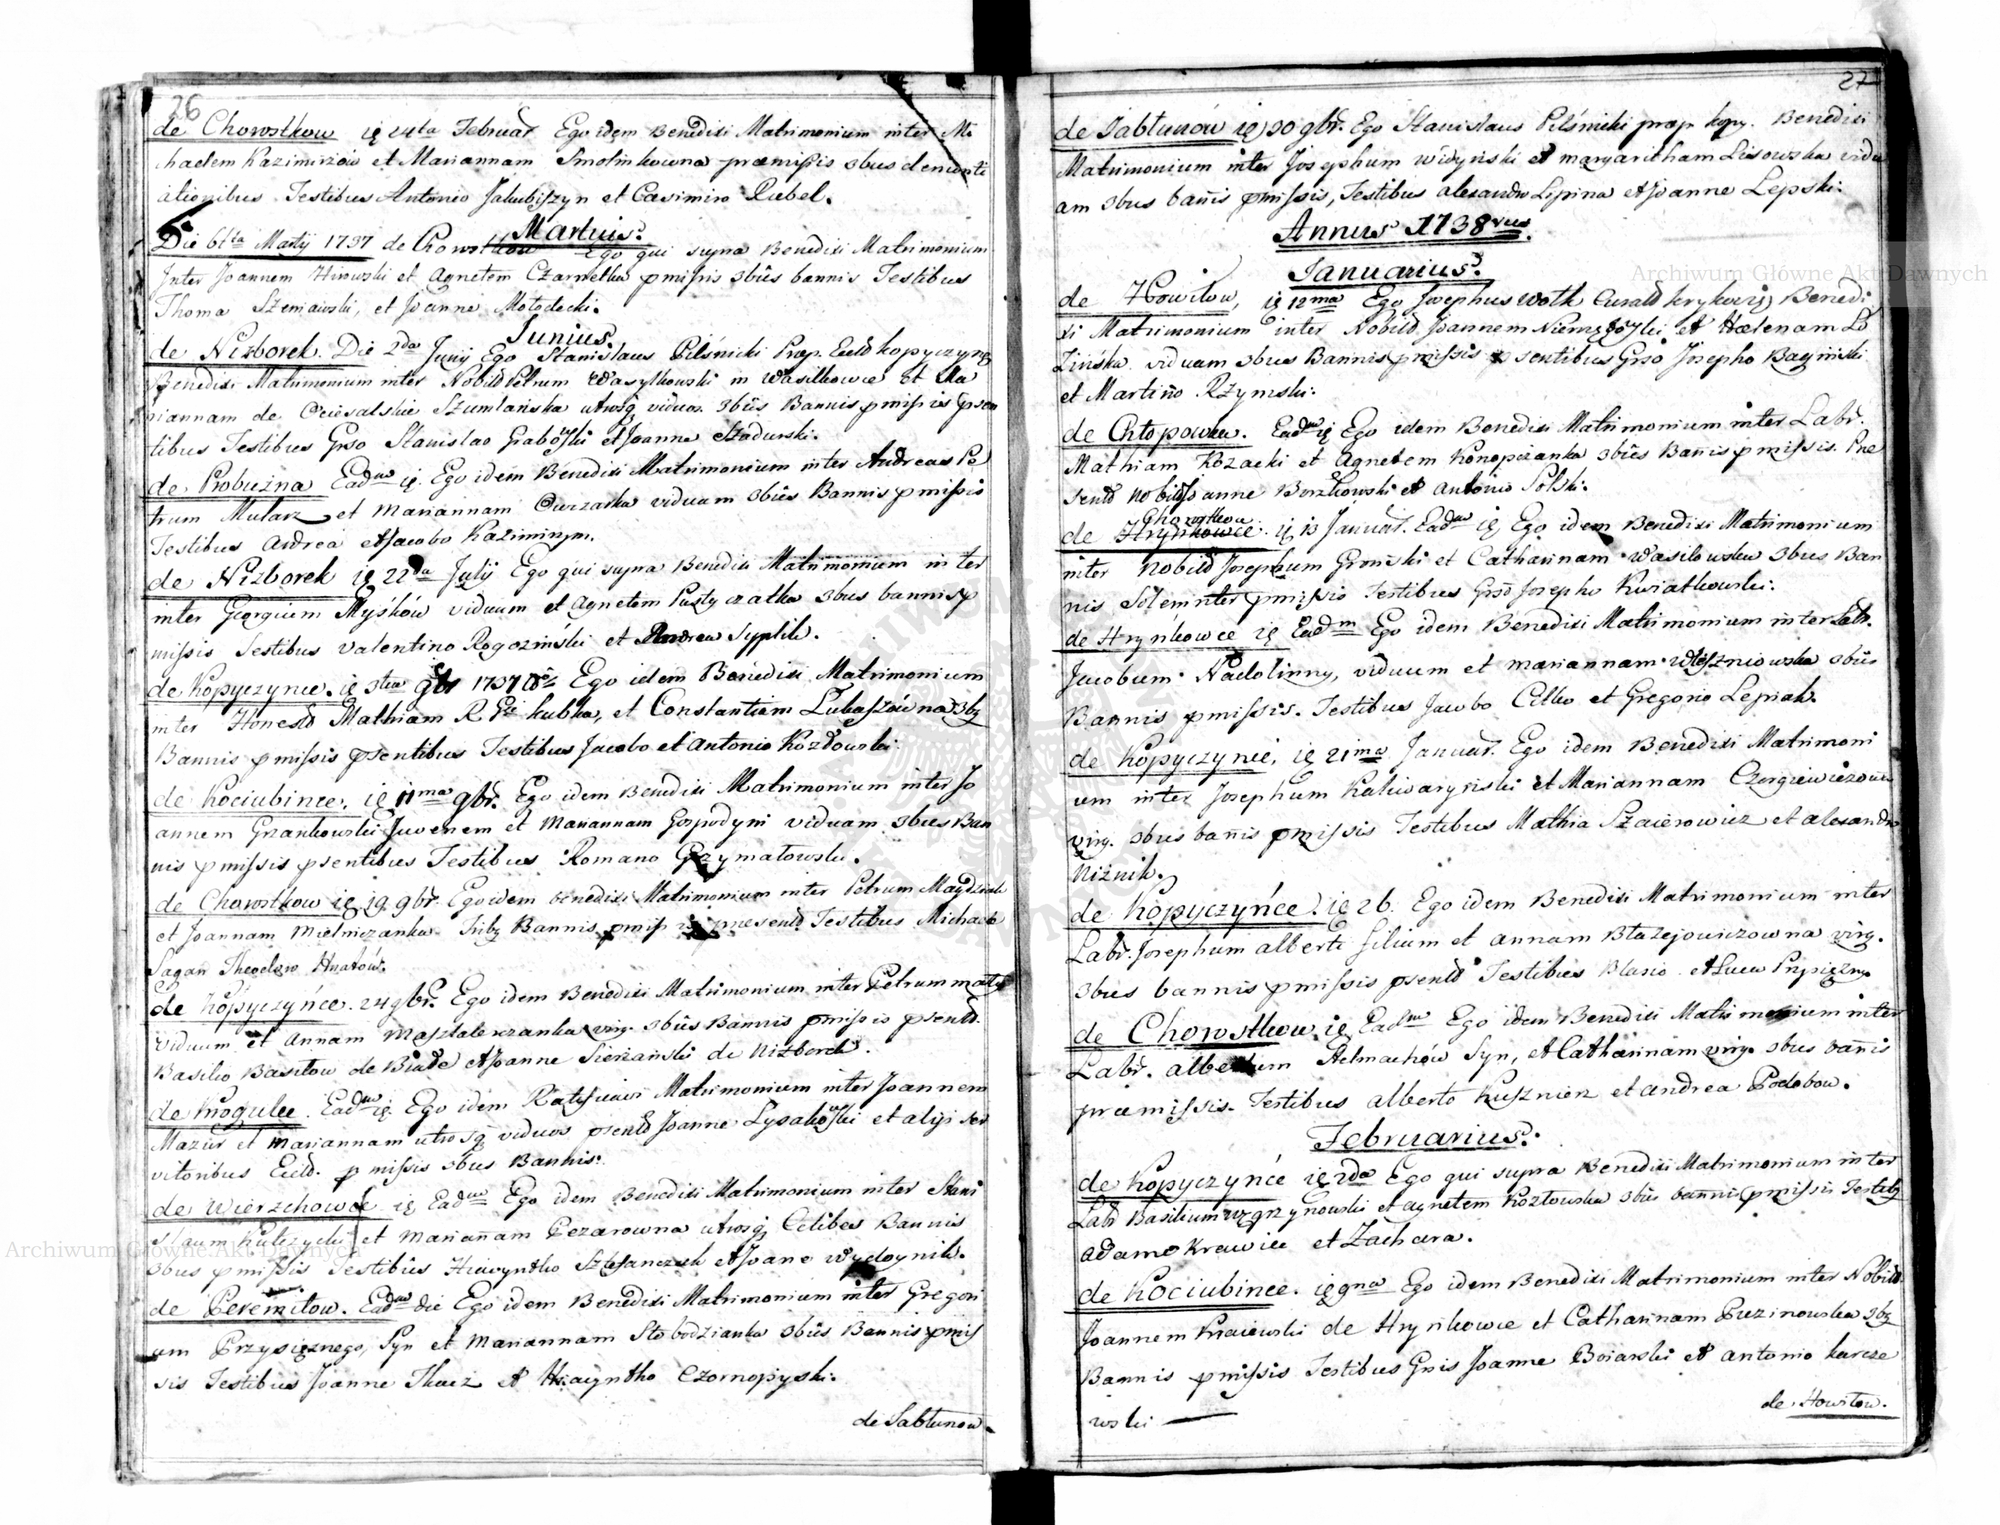 26
de Chorostkow ię 24ta Februar. Ego idem Benedixi Matrimonium inter Mi
chaelem Kazimirzów et Mariannam Smolinkowna præmissis 3bus denunti
ationibus. Testibus Antonio Jakubiszyn et Casimiro Rebel.
Martius.
Die 6ta Martij 1737 de Chorostkow Ego qui supra Benedixi Matrimonium
Inter Joannem Hirowski et Agnetem Czarnetka pmissis 3bus bannis Testibus
Thoma Szeniawski, et Joanne Mołodecki.
Junius.
de Nizborek. Die 2da Junij Ego Stanislaus Pilśnicki Præp. Eccld kopyczyn
Benedixi Matrimonium inter Nobild Petrum Wasylkowski in Wasilkowce et Ma
riannam de Szumlańska utrosq viduos. 3bus Bannis pmissis psen
tibus Testibus Gnso Stanislao Grabowski et Joanne Szadurski.
de Probużna Eadem ię. Ego idem Benedixi Matrimonium inter Andream Pe
trum Mularz et Mariannam viduam 3bus Bannis pmissis
Testibus Andrea et Jacobo Kazimirzym.
de Nizborek ię 22da Julij Ego qui supra Benedixi Matrimonium inter
inter Georgium Myśków viduum et Agnetem Pustyczatka 3bus bannis p
missis Testibus Valentino Rogoziński et Andrea Syplik.
de Kopyczynce. ię 3tia 9br 1737 Ego idem Benedixi Matrimonium
inter Honestd Mathiam et Constantiam Lukaszówna 3bq
Bannis pmissis psentibus Testibus Jacobo et Antonio Kozłowski.
de Kociubince. ię 11ma 9br. Ego idem Benedixi Matrimonium inter Jo
annem Grzankowski Juvenem et Mariannam Gospodyni viduam 3bus Ban
nis pmissis psentibus Testibus Romano Grzymałowski.
de Chorostkow ię 19 9br. Ego idem benedixi Matrimonium inter Petrum
et Joannam Mielniczanka Tribq Bannis pmissis præsentd Testibus Michaele
Sagan Theodoro Hnatów.
de Kopyczyńce. 24 9br. Ego idem Benedixi Matrimonium inter Petrum
viduum et Annam Masztalerczanka virg. 3bus Bannis pmissis psentd
Basilio Basitow de Biade et Joanne Sierżański de Nizborek.
de Krogulec. Eadem ię. Ego idem Ratificavi Matrimonium inter Joannem
Mazur et Mariannam utrosq viduos psentd Joanne Łysakowski et alijs ser
vitoribus Eccld. pmissis 3bus Bannis.
de Wierzchowce ię Eadem Ego idem Benedixi Matrimonium inter Stani
slaum Kulczycki et Mariannam Pezarowna utrosq Celibes Bannis
3bus pmissis Testibus Hiacyntho Sztefanczuk et Joane Wydoynik.
de Peremiłow. Eadem die Ego idem Benedixi Matrimonium inter Gregori
um Przysiężnego, Syn et Mariannam Słobodzianka 3bus Bannis pmis
sis Testibus Joanne Tkacz et Hiacyntho Czornopyski.
de Jabłunow
27
de Jabłunów ię 30 9br. Ego Stanislaus Pilśnicki præp. kopy. Benedixi
Matrimonium inter Josephum Widyński et Margaritham Lisowska vidu
am 3bus bañis pmissis, Testibus Alexandro Lipina et Joanne Lepski.
Annus 1738vus
Januarius.
de Howiłow, ię 12ma Ego Josephus Wołk Benedi
xi Matrimonium inter Nobild Joannem et Helenam Lo
zińska viduam 3bus Bannis pmissis psentibus Gnso Josepho Bagiński
et Martino Rżymski.
de Chłopowka. Eadem ię Ego idem Benedixi Matrimonium inter Labr.
Mathiam Kozacki et Agnetem Konopczanka 3bus Bañis pmissis. Præ
sentd Nobild Joanne Borzkowski et Antonio Polski.
Chorostkow
de Hrynkowce. ię 13 Januar. Eadem ię Ego idem Benedixi Matrimonium
inter Nobild Josephum Groński et Catharinam Wasilowska 3bus Ban
nis Solemniter pmissis Testibus Gnsd Josepho Kwiatkowski.
de Hryńkowce ię Eadm Ego idem Benedixi Matrimonium inter Labr.
Jacobum Nadolinny, viduum et Mariannam Wiszniowska 3bus
Bannis pmissis. Testibus Jacobo Citko et Gregorio Lepiak.
de Kopyczynce, ię 21ma Januar. Ego idem Benedixi Matrimoni
um inter Josephum Kalwaryiski et Mariannam
virg. 3bus bañis pmissis Testibus Mathia Szaierowicz et Alexandro
Niżnik.
de Kopyczyńce. ię 26. Ego idem Benedixi Matrimonium inter
Labr. Josephum Alberti filium et Annam Błażejowiczowna virg.
3bus bannis pmissis psentd Testibus Blasio et Luca Prysiężny
de Chorostkow ię Eadem Ego idem Benedixi Matrimonium inter
Labr. Albertum Stelmachów Syn, et Catharinam virg. 3bus bañis
præmissis. Testibus Alberto Kusznierz et Andrea Podobow.
Februarius.
de Kopyczyńce ię 2da Ego qui supra Benedixi Matrimonium inter
Labr Basilium Węgrzynowski et Agnetem Kozłowska 3bus bannis pmissis Testibq
Adamo Krawiec et Zachara.
de Kociubince. ię 9na Ego idem Benedixi Matrimonium inter Nobild
Joannem Kraiewski de Hryńkowce et Catharinam Brzinowska 3bq
Bannis pmissis Testibus Gnsis Joanne Boiarski et Antonio Karcze
wski
de Howiłow.
Archiwum Główne Akt Dawnych
Archiwum Główne Akt Dawnych